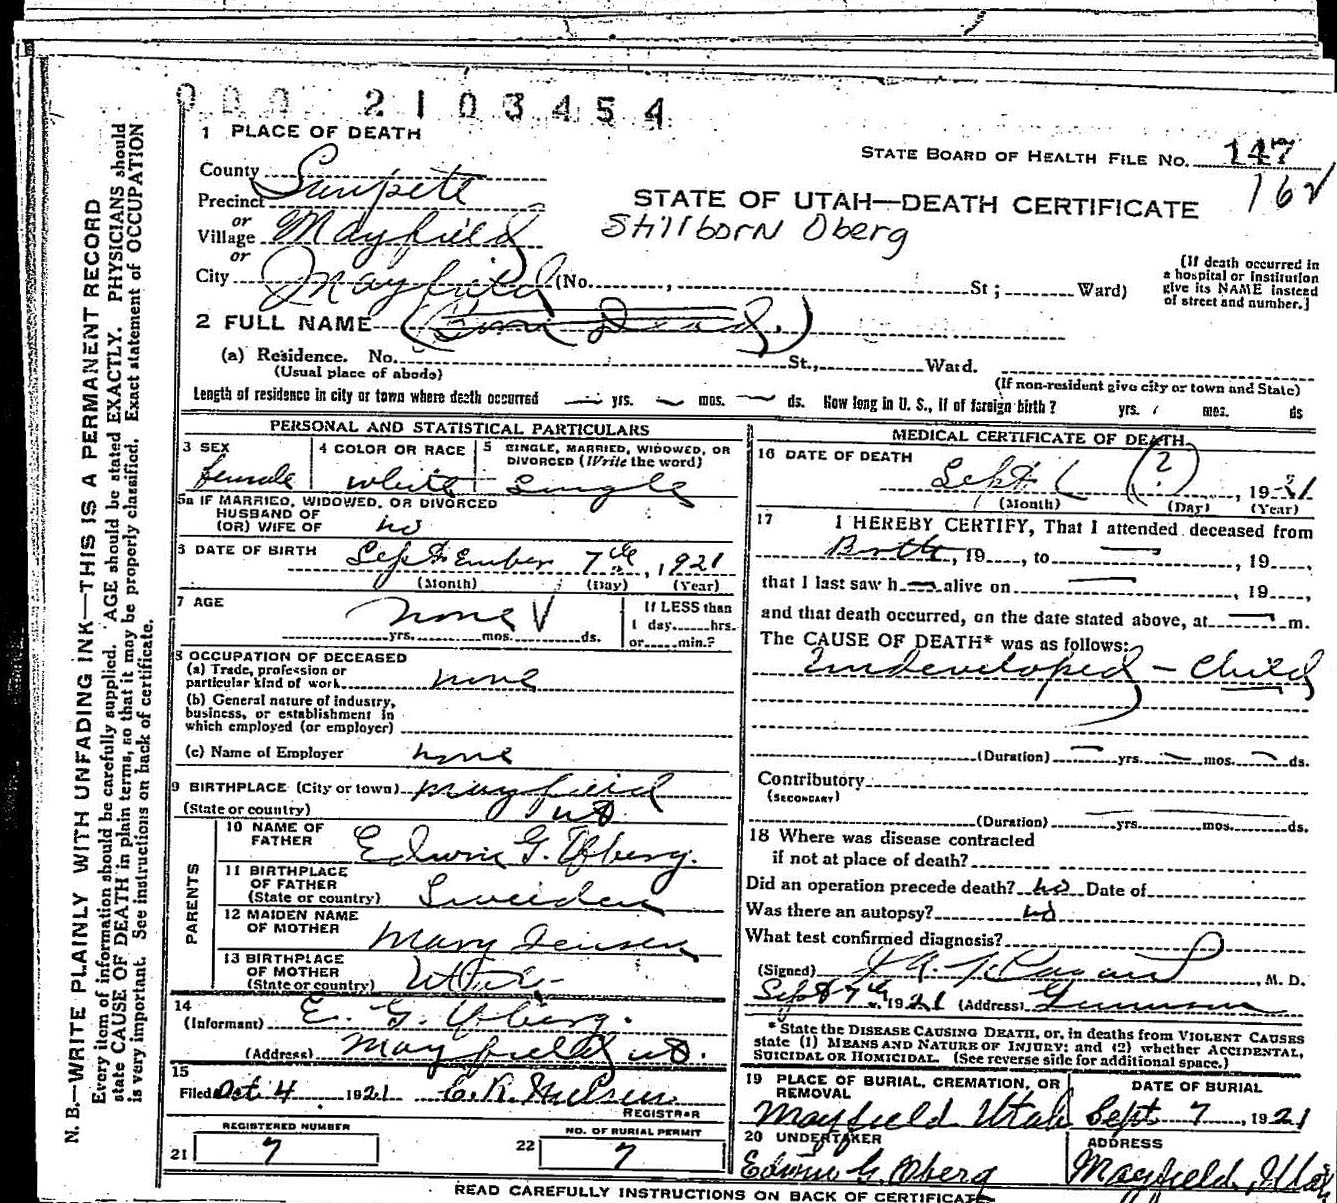 000 2103454
1 PLACE OF DEATH
STATE BOARD OF HEALTH FILE NO. 147
County Sanpete
162
Precinct
STATE OF UTAH—DEATH CERTIFICATE
or
Village Mayfield
Stillborn Oberg
or
City Mayfield (No. , St ; Ward)
(If death occurred in
a hospital or institution
give its NAME instead
of street and number.]
2 FULL NAME (Born Dead.)
(a) Residence. No. St., Ward.
(Usual place of abode)
(If non-resident give city or town and State)
Length of residence in city or town where death occurred — yrs. — mos. — ds. How long in U. S., if of foreign birth? yrs. mos. ds
PERSONAL AND STATISTICAL PARTICULARS
3 SEX
female
4 COLOR OR RACE
white
5 SINGLE, MARRIED, WIDOWED, OR
DIVORCED (Write the word)
Single
5a IF MARRIED, WIDOWED, OR DIVORCED
HUSBAND OF
(OR) WIFE OF no
6 DATE OF BIRTH September 7th, 1921
(Month) (Day) (Year)
7 AGE none
yrs. mos. ds.
If LESS than
1 day hrs.
or min.?
8 OCCUPATION OF DECEASED
(a) Trade, profession or
particular kind of work none
(b) General nature of industry,
business, or establishment in
which employed (or employer)
(c) Name of Employer none
9 BIRTHPLACE (City or town) Mayfield
(State or country) ut.
PARENTS
10 NAME OF
FATHER Edwin G. Oberg.
11 BIRTHPLACE
OF FATHER
(State or country) Sweiden
12 MAIDEN NAME
OF MOTHER Mary Jensen
13 BIRTHPLACE
OF MOTHER
(State or country) Utah
14
(Informant) E. G. Oberg.
(Address) Mayfield ut.
15
Filed Oct. 4 1921 C. R. Nielsen
REGISTRAR
REGISTERED NUMBER
21 7
NO. OF BURIAL PERMIT
22 7
MEDICAL CERTIFICATE OF DEATH
16 DATE OF DEATH
Sept. (?) , 1921
(Month) (Day) (Year)
17 I HEREBY CERTIFY, That I attended deceased from
Birth, 19 , to — , 19 ,
that I last saw h— alive on — , 19 ,
and that death occurred, on the date stated above, at — m.
The CAUSE OF DEATH* was as follows:
Undeveloped – Child
(Duration) — yrs. — mos. — ds.
Contributory
(SECONDARY)
(Duration) yrs. mos. ds.
18 Where was disease contracted
if not at place of death?
Did an operation precede death? no Date of
Was there an autopsy? no
What test confirmed diagnosis?
(Signed) , M. D.
Sept 7th, 1921 (Address) Gunnison
*State the DISEASE CAUSING DEATH, or, in deaths from VIOLENT CAUSES
state (1) MEANS AND NATURE OF INJURY; and (2) whether ACCIDENTAL,
SUICIDAL OR HOMICIDAL. (See reverse side for additional space.)
19 PLACE OF BURIAL, CREMATION, OR
REMOVAL
Mayfield Utah
DATE OF BURIAL
Sept. 7, 1921
20 UNDERTAKER
Edwin G. Oberg
ADDRESS
Mayfield, Utah
READ CAREFULLY INSTRUCTIONS ON BACK OF CERTIFICATE
N. B.—WRITE PLAINLY WITH UNFADING INK—THIS IS A PERMANENT RECORD
Every item of information should be carefully supplied. AGE should be stated EXACTLY. PHYSICIANS should
state CAUSE OF DEATH in plain terms, so that it may be properly classified. Exact statement of OCCUPATION
is very important. See instructions on back of certificate.